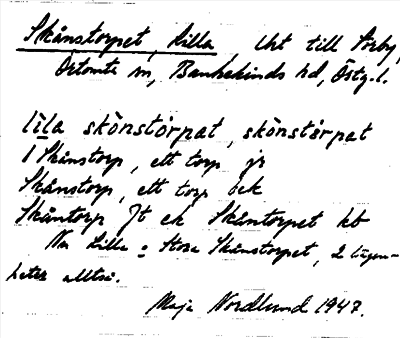 Skånstorpet, Lilla Lht till Åsby,
Örtomta sn, Bankekinds hd, Östg.l.
lìla skånstórpat, skånstórpat
1 Skånstorp, ett torp jr
Skånstorp, ett torp öck
Skåntorp Jt ek Skåntorpet kb
Nu Lilla o Stora Skånstorpet, 2 lägen-
heter alltså.
Maja Nordlund 1947.